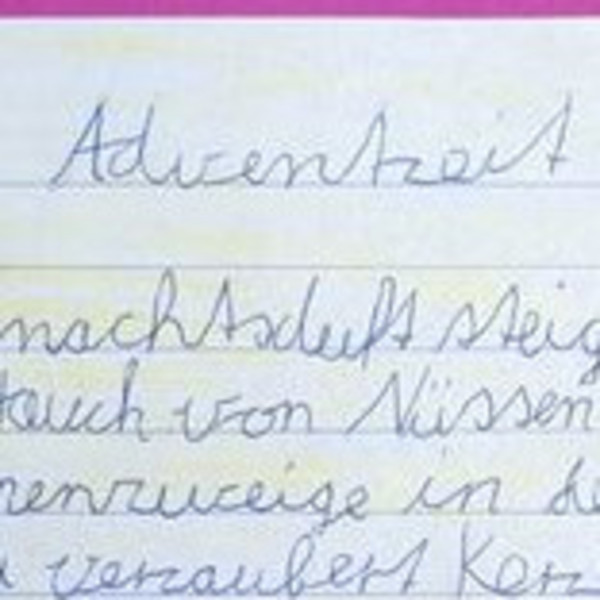 Adventzeit
nachtsduft steig
Hauch von Nüssen
nenzweige in de
verzaubert Kerz